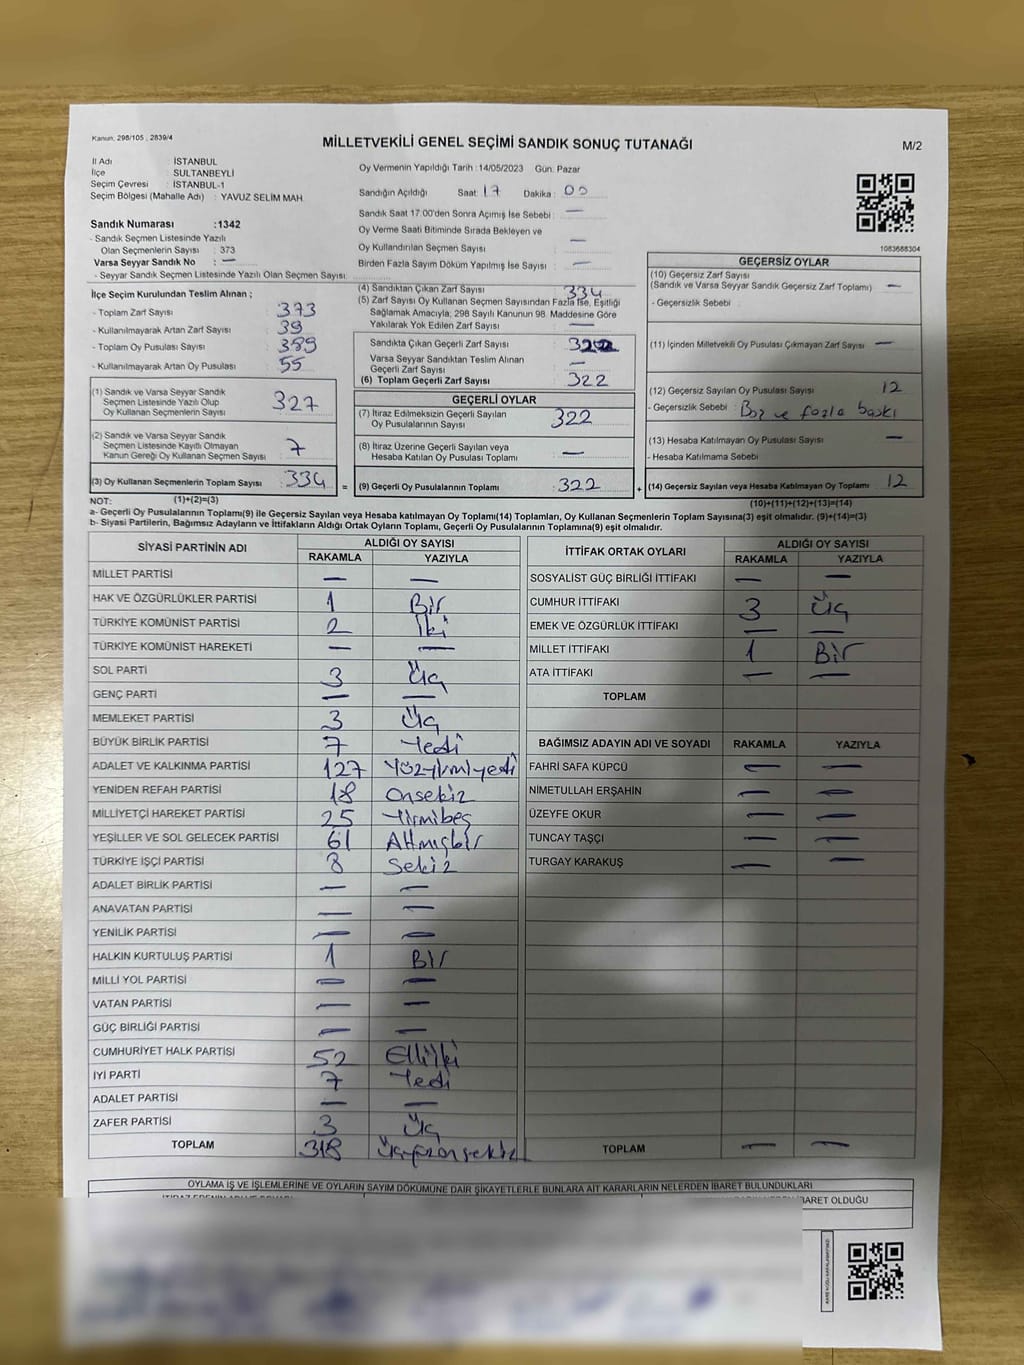 Kanun, 298/105 , 2839/4
MİLLETVEKİLİ GENEL SEÇİMİ SANDIK SONUÇ TUTANAĞI
M/2
İl Adı : İSTANBUL
İlçe : SULTANBEYLİ
Seçim Çevresi : İSTANBUL-1
Seçim Bölgesi (Mahalle Adı) : YAVUZ SELİM MAH.
Oy Vermenin Yapıldığı Tarih : 14/05/2023 Gün: Pazar
Sandığın Açıldığı Saat: 17 Dakika : 00
Sandık Saat 17:00'den Sonra Açımış İse Sebebi : —
Oy Verme Saati Bitiminde Sırada Bekleyen ve
Oy Kullandırılan Seçmen Sayısı : —
Birden Fazla Sayım Döküm Yapılmış İse Sayısı : —
1083688304
Sandık Numarası :1342
- Sandık Seçmen Listesinde Yazılı
Olan Seçmenlerin Sayısı : 373
Varsa Seyyar Sandık No : —
- Seyyar Sandık Seçmen Listesinde Yazılı Olan Seçmen Sayısı:
İlçe Seçim Kurulundan Teslim Alınan ;
- Toplam Zarf Sayısı : 373
- Kullanılmayarak Artan Zarf Sayısı : 39
- Toplam Oy Pusulası Sayısı : 389
- Kullanılmayarak Artan Oy Pusulası : 55
(1) Sandık ve Varsa Seyyar Sandık
Seçmen Listesinde Yazılı Olup
Oy Kullanan Seçmenlerin Sayısı : 327
(2) Sandık ve Varsa Seyyar Sandık
Seçmen Listesinde Kayıtlı Olmayan
Kanun Gereği Oy Kullanan Seçmen Sayısı : 7
(3) Oy Kullanan Seçmenlerin Toplam Sayısı : 334
(4) Sandıktan Çıkan Zarf Sayısı : 334
(5) Zarf Sayısı Oy Kullanan Seçmen Sayısından Fazla İse, Eşitliği
Sağlamak Amacıyla; 298 Sayılı Kanunun 98. Maddesine Göre
Yakılarak Yok Edilen Zarf Sayısı : —
Sandıkta Çıkan Geçerli Zarf Sayısı : 322
Varsa Seyyar Sandıktan Teslim Alınan
Geçerli Zarf Sayısı : —
(6) Toplam Geçerli Zarf Sayısı : 322
GEÇERLİ OYLAR
(7) İtiraz Edilmeksizin Geçerli Sayılan
Oy Pusulalarının Sayısı : 322
(8) İtiraz Üzerine Geçerli Sayılan veya
Hesaba Katılan Oy Pusulası Toplamı : —
= (9) Geçerli Oy Pusulalarının Toplamı : 322 +
GEÇERSİZ OYLAR
(10) Geçersiz Zarf Sayısı
(Sandık ve Varsa Seyyar Sandık Geçersiz Zarf Toplamı) : —
- Geçersizlik Sebebi :
(11) İçinden Milletvekili Oy Pusulası Çıkmayan Zarf Sayısı : —
(12) Geçersiz Sayılan Oy Pusulası Sayısı : 12
- Geçersizlik Sebebi : Boş ve fazla baskı
(13) Hesaba Katılmayan Oy Pusulası Sayısı : —
- Hesaba Katılmama Sebebi :
(14) Geçersiz Sayılan veya Hesaba Katılmayan Oy Toplamı : 12
NOT: (1)+(2)=(3)
(10)+(11)+(12)+(13)=(14)
a- Geçerli Oy Pusulalarının Toplamı(9) ile Geçersiz Sayılan veya Hesaba katılmayan Oy Toplamı(14) Toplamları, Oy Kullanan Seçmenlerin Toplam Sayısına(3) eşit olmalıdır. (9)+(14)=(3)
b- Siyasi Partilerin, Bağımsız Adayların ve İttifakların Aldığı Ortak Oyların Toplamı, Geçerli Oy Pusulalarının Toplamına(9) eşit olmalıdır.
SİYASİ PARTİNİN ADI ALDIĞI OY SAYISI
RAKAMLA YAZIYLA
MİLLET PARTİSİ — —
HAK VE ÖZGÜRLÜKLER PARTİSİ 1 Bir
TÜRKİYE KOMÜNİST PARTİSİ 2 İki
TÜRKİYE KOMÜNİST HAREKETİ — —
SOL PARTİ 3 Üç
GENÇ PARTİ — —
MEMLEKET PARTİSİ 3 Üç
BÜYÜK BİRLİK PARTİSİ 7 Yedi
ADALET VE KALKINMA PARTİSİ 127 Yüzyirmiyedi
YENİDEN REFAH PARTİSİ 18 Onsekiz
MİLLİYETÇİ HAREKET PARTİSİ 25 Yirmibeş
YEŞİLLER VE SOL GELECEK PARTİSİ 61 Altmışbir
TÜRKİYE İŞÇİ PARTİSİ 8 Sekiz
ADALET BİRLİK PARTİSİ — —
ANAVATAN PARTİSİ — —
YENİLİK PARTİSİ — —
HALKIN KURTULUŞ PARTİSİ 1 Bir
MİLLİ YOL PARTİSİ — —
VATAN PARTİSİ — —
GÜÇ BİRLİĞİ PARTİSİ — —
CUMHURİYET HALK PARTİSİ 52 Elliiki
İYİ PARTİ 7 Yedi
ADALET PARTİSİ — —
ZAFER PARTİSİ 3 Üç
TOPLAM 318 Üçyüzonsekiz
İTTİFAK ORTAK OYLARI ALDIĞI OY SAYISI
RAKAMLA YAZIYLA
SOSYALİST GÜÇ BİRLİĞİ İTTİFAKI — —
CUMHUR İTTİFAKI 3 Üç
EMEK VE ÖZGÜRLÜK İTTİFAKI — —
MİLLET İTTİFAKI 1 Bir
ATA İTTİFAKI — —
TOPLAM
BAĞIMSIZ ADAYIN ADI VE SOYADI RAKAMLA YAZIYLA
FAHRİ SAFA KÜPCÜ — —
NİMETULLAH ERŞAHİN — —
ÜZEYFE OKUR — —
TUNCAY TAŞÇI — —
TURGAY KARAKUŞ — —
TOPLAM — —
OYLAMA İŞ VE İŞLEMLERİNE VE OYLARIN SAYIM DÖKÜMÜNE DAİR ŞİKAYETLERLE BUNLARA AİT KARARLARIN NELERDEN İBARET BULUNDUKLARI
İBARET OLDUĞU